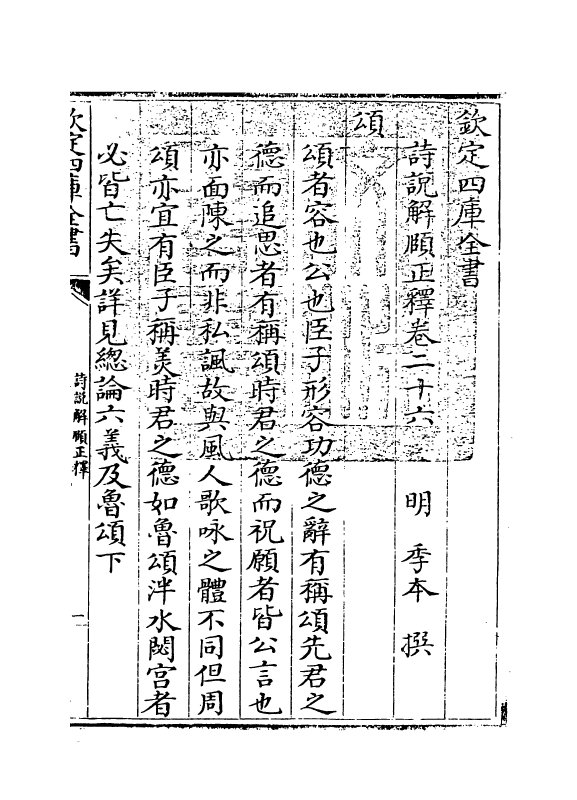 欽定四庫全書
詩說解頤正釋卷二十六　明　季本　撰
頌
頌者容也公也臣子形容功德之辭有稱頌先君之
德而追思者有稱頌時君之德而祝願者皆公言也
亦面陳之而非私諷故與風人歌咏之體不同但周
頌亦宜有臣子稱美時君之德如魯頌泮水閟宫者
必皆亡失矣詳見總論六義及魯頌下
欽定四庫全書
詩說解頤正釋
一